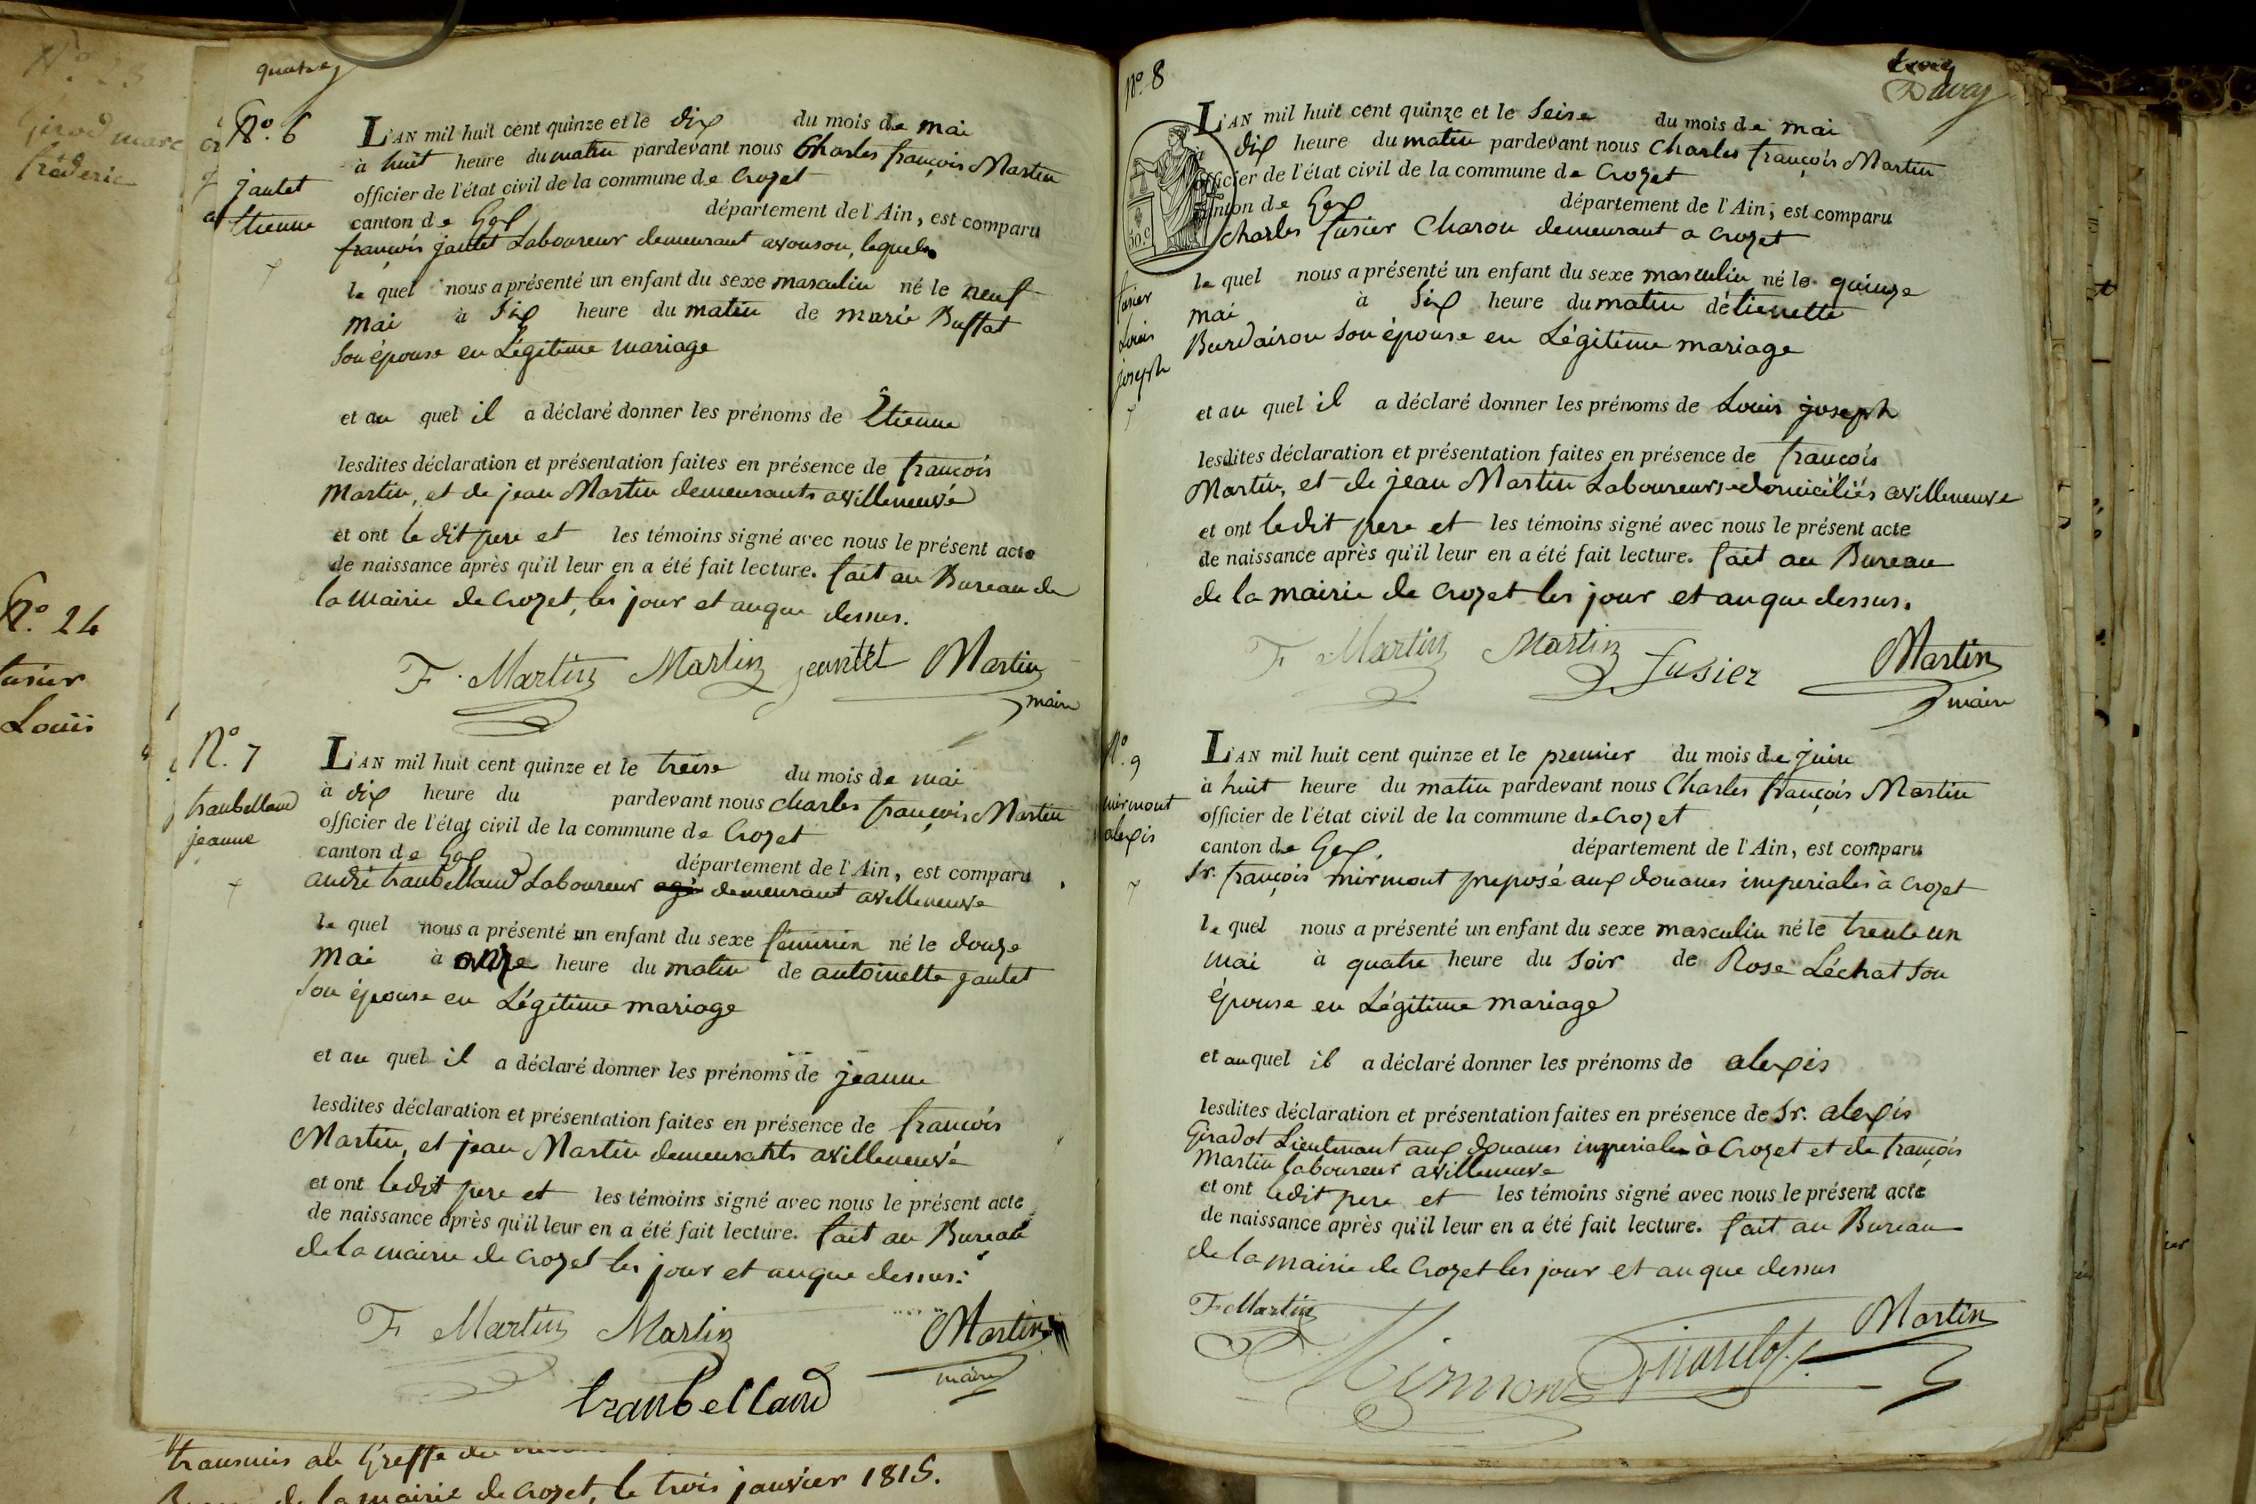 N.° 23
Girod marc
fréderic
N.° 24
fusier
Louis
quatre
N.° 6
jantet
Etienne
L'AN mil huit cent quinze et le dix du mois de mai
à huit heure du matin pardevant nous Charles françois Martin
officier de l'état civil de la commune de Crozet
canton de Gex département de l'Ain, est comparu
françois jantet Laboureur demeurant avouson, lequel
le quel nous a présenté un enfant du sexe masculin né le neuf
mai à Six heure du matin de marie Buffat
Son épouse en Légitime mariage
et au quel il a déclaré donner les prénoms de Etienne
lesdites déclaration et présentation faites en présence de françois
Martin, et de jean Martin demeurants avilleneuve
et ont le dit pere et les témoins signé avec nous le présent acte
de naissance après qu'il leur en a été fait lecture. fait au Bureau de
la mairie de Crozet, les jour et an que dessus.
F. Martin Martin jeantet Martin
maire
N.° 7
tranbelland
jeanne
L'AN mil huit cent quinze et le treise du mois de mai
à dix heure du pardevant nous charles françois Martin
officier de l'état civil de la commune de Crozet
canton de Gex département de l'Ain, est comparu
andré tranbelland Laboureur demeurant avilleneuve
le quel nous a présenté un enfant du sexe féminin né le douze
mai à onze heure du matin de antoinette jantet
Son épouse en Légitime mariage
et au quel il a déclaré donner les prénoms de jeanne
lesdites déclaration et présentation faites en présence de françois
Martin, et jean Martin demeurants avilleneuve
et ont ledit pere et les témoins signé avec nous le présent acte
de naissance après qu'il leur en a été fait lecture. fait au Bureau
de la mairie de Crozet les jour et an que dessus.
F Martin Martin Martin
maire
tranbelland
transmis au Greffe du
de la mairie de Crozet, le trois janvier 1815.
N.° 8
fusier
Louis
joseph
L'AN mil huit cent quinze et le Seise du mois de mai
dix heure du matin pardevant nous Charles françois Martin
officier de l'état civil de la commune de Crozet
canton de Gex département de l'Ain, est comparu
charles fusier Charon demeurant a Crozet
le quel nous a présenté un enfant du sexe masculin né le quinze
mai à Six heure du matin détiennette
Burdairon Son épouse en Légitime mariage
et au quel il a déclaré donner les prénoms de Louis joseph
lesdites déclaration et présentation faites en présence de françois
Martin, et de jean Martin Laboureurs domiciliés avilleneuve
et ont ledit pere et les témoins signé avec nous le présent acte
de naissance après qu'il leur en a été fait lecture. fait au Bureau
de la mairie de Crozet les jour et an que dessus.
F Martin Martin fusier Martin
maire
N.° 9
mirmont
alexis
L'AN mil huit cent quinze et le premier du mois de juin
à huit heure du matin pardevant nous Charles françois Martin
officier de l'état civil de la commune de Crozet
canton de Gex, département de l'Ain, est comparu
Sr. françois mirmont preposé aux douanes imperiales à Crozet
le quel nous a présenté un enfant du sexe masculin né le trente un
mai à quatre heure du Soir de Rose Léchat Son
épouse en Légitime mariage
et au quel il a déclaré donner les prénoms de alexis
lesdites déclaration et présentation faites en présence de Sr. alexis
Giradot Lieutenant aux douanes imperiales à Crozet et de françois
Martin laboureur avilleneuve
et ont ledit pere et les témoins signé avec nous le présent acte
de naissance après qu'il leur en a été fait lecture. fait au Bureau
de la mairie de Crozet les jour et an que dessus
F Martin Mirmont Girardot Martin